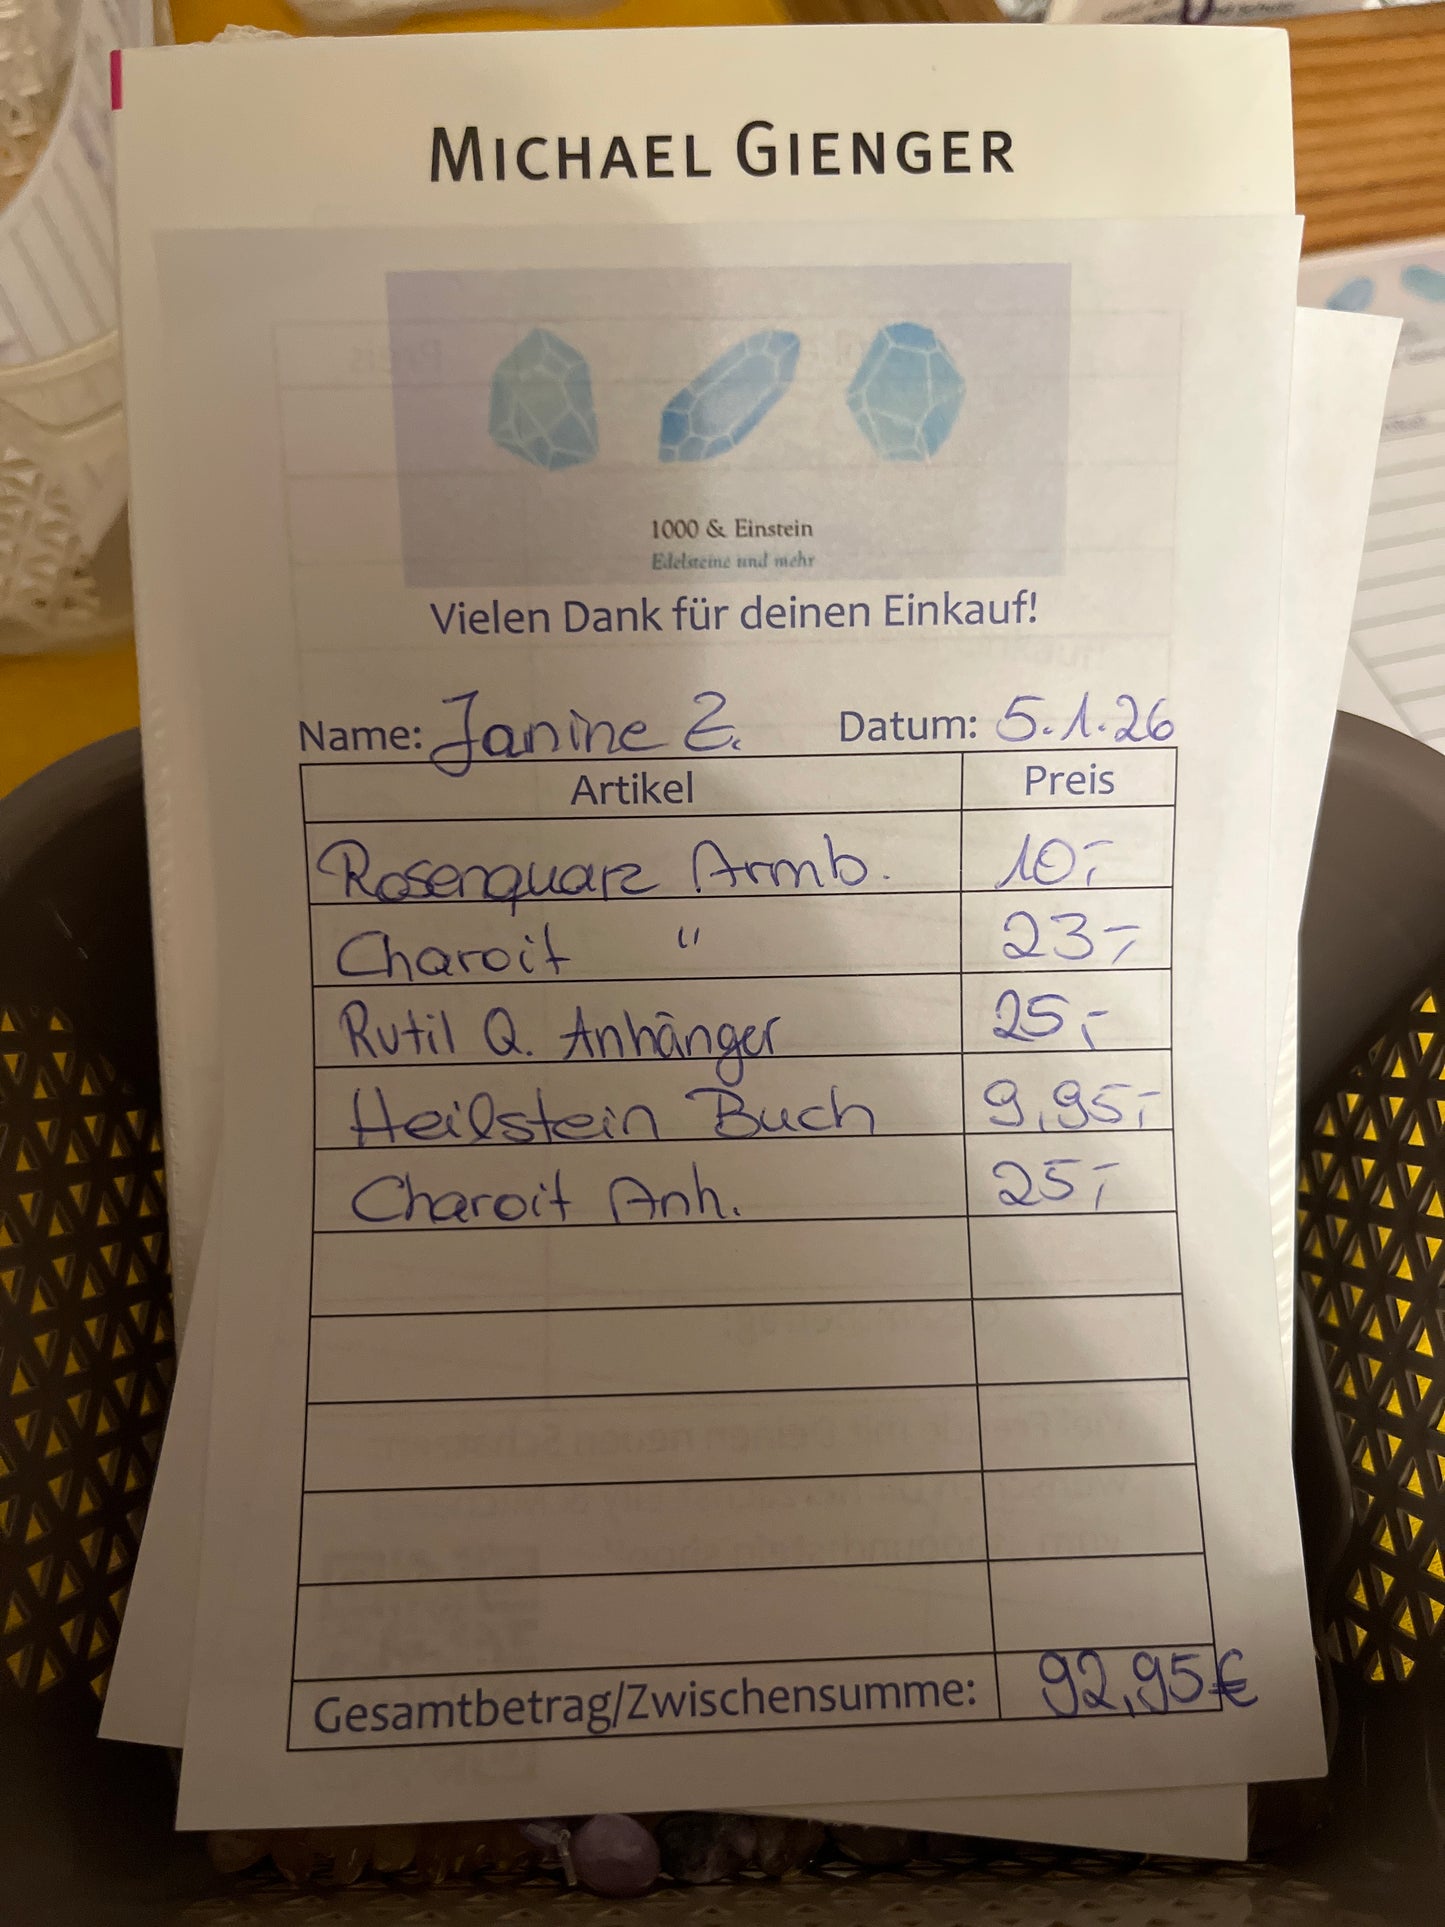 MICHAEL GIENGER
1000 & Einstein
Edelsteine und mehr
Vielen Dank für deinen Einkauf!
Name: Janine Z. Datum: 5.1.26
Artikel Preis
Rosenquarz Armb. 10,-
Charoit " 23,-
Rutil Q. Anhänger 25,-
Heilstein Buch 9,95,-
Charoit Anh. 25,-
Gesamtbetrag/Zwischensumme: 92,95€